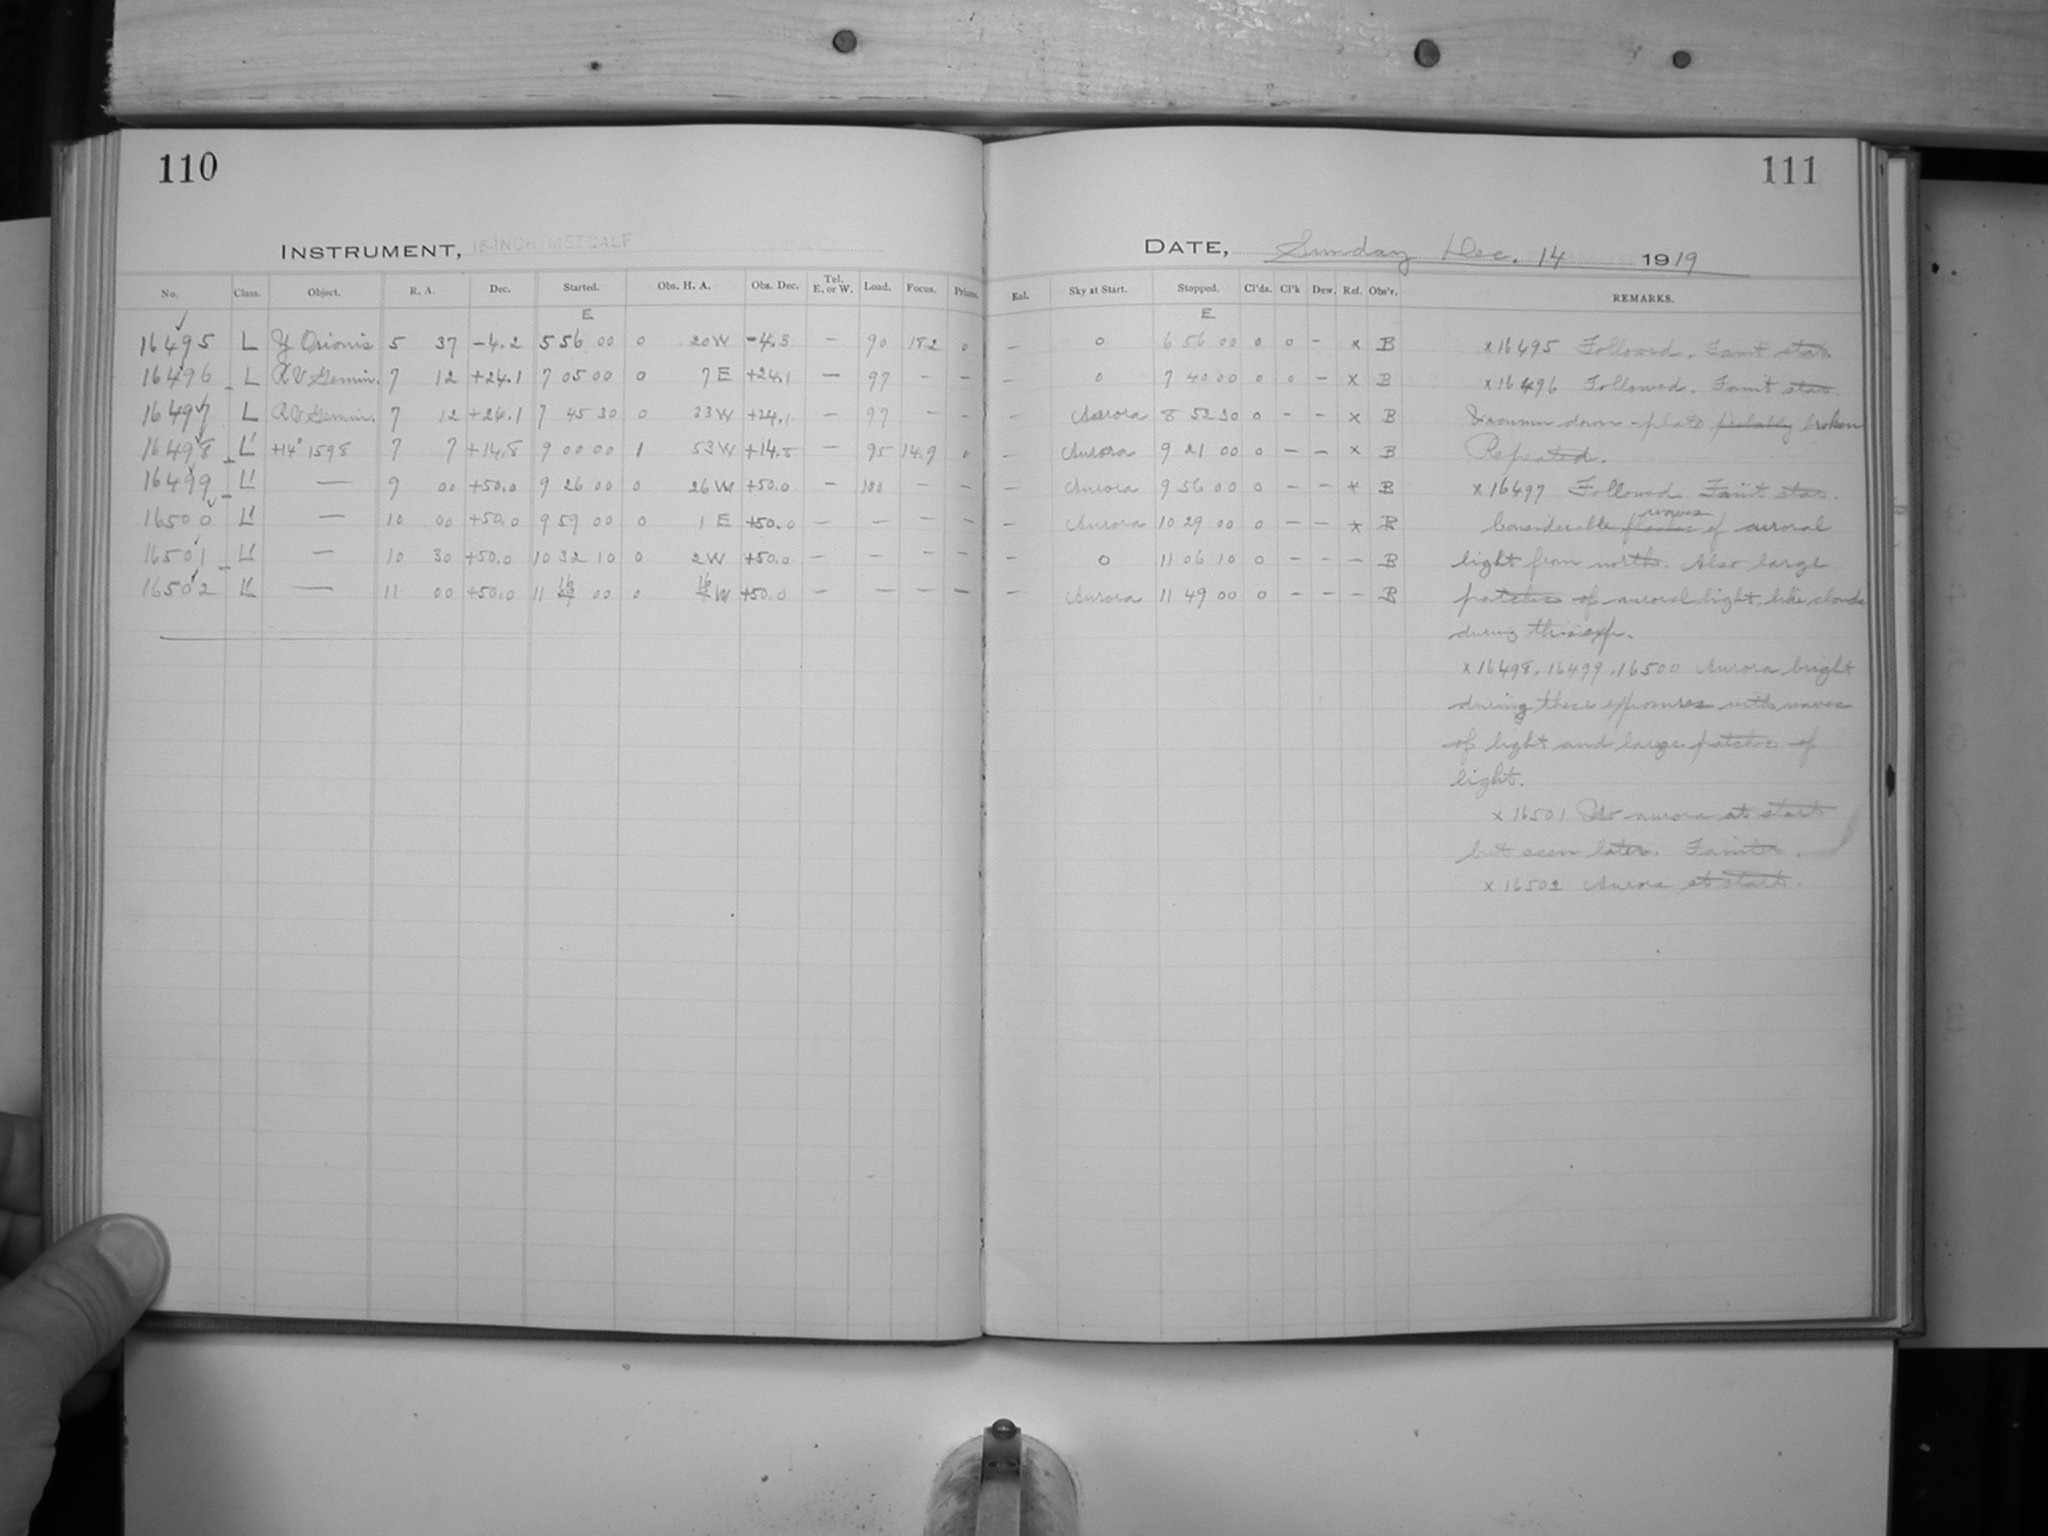 110
INSTRUMENT, 16-INCH METCALF
No. Class. Object. R. A. Dec. Started. Obs. H. A. Obs. Dec. Tel. E. or W. Load. Focus. Prism.
E
16495 L Y Orionis 5 37 -4.2 5 56 00 0 20 W -4.3 - 90 18.2 0
16496 L RV Gemin. 7 12 +24.1 7 05 00 0 7 E +24.1 - 97 - -
16497 L RV Gemin. 7 12 +24.1 7 45 30 0 33 W +24.1 - 97 - -
16498 L' +14° 1598 7 7 +14.8 9 00 00 1 53 W +14.8 - 95 14.9 0
16499 L' — 9 00 +50.0 9 26 00 0 26 W +50.0 - 100 - -
16500 L' — 10 00 +50.0 9 59 00 0 1 E +50.0 - - - -
16501 L' — 10 30 +50.0 10 32 10 0 2 W +50.0 - - - -
16502 L' — 11 00 +50.0 11 16 00 0 16 W +50.0 - - - -
111
DATE, Sunday Dec. 14 1919
Enl. Sky at Start. Stopped. Cl'ds. Cl'k Dew. Rel. Obs'r. REMARKS.
E
- 0 6 56 00 0 0 - x B
- 0 7 40 00 0 0 - x B
- Aurora 8 52 30 0 - - x B
- Aurora 9 21 00 0 - - x B
- Aurora 9 56 00 0 - - x B
- Aurora 10 29 00 0 - - x B
- 0 11 06 10 0 - - - B
- Aurora 11 49 00 0 - - - B
x 16495 Followed. Faint star.
x 16496 Followed. Faint star.
Vacuum down - plate probably broken
Repeated.
x 16497 Followed. Faint star.
waves
Considerable of auroral
light from north. Also large
patches of auroral light, like clouds
during this exp.
x 16498, 16499, 16500 Aurora bright
during these exposures with waves
of light and large patches of
light.
x 16501 No aurora at start
but seen later. Fainter.
x 16502 Aurora at start.